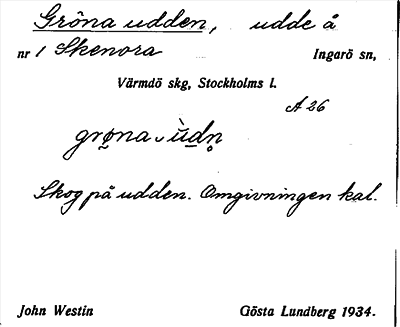 Gröna udden, udde å
nr 1 Skenora Ingarö sn,
Värmdö skg, Stockholms l.
A 26
grø̨na ᴗ ù̱dn̥
Skog på udden. Omgivningen kal.
John Westin Gösta Lundberg 1934.